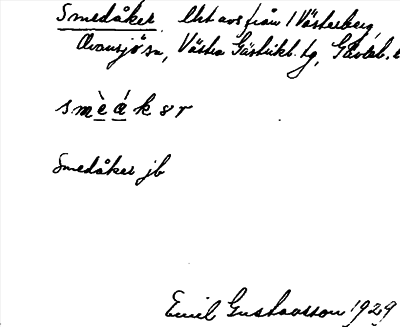 Smedåker lht avs från 1 Västerberg,
Ovansjö sn, Västra Gästrikl. tg, Gävleb. l
smèákər
Smedåker jb
Emil Gustavsson 1929